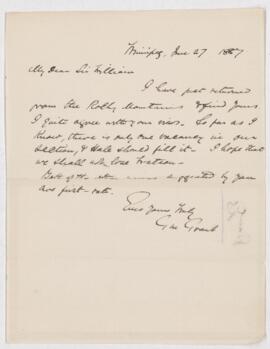 Winnipeg, June 27 1887
My Dear Sir William
I have just returned
from the Rocky Mountains & find yours
I quite agree with your views. So far as I
know, there is only one vacancy in our
section, & Hale should fill it. I hope that
we shall not lose Watson.
suggested by you
are first-rate.
Ever Yours truly
Geo Grant